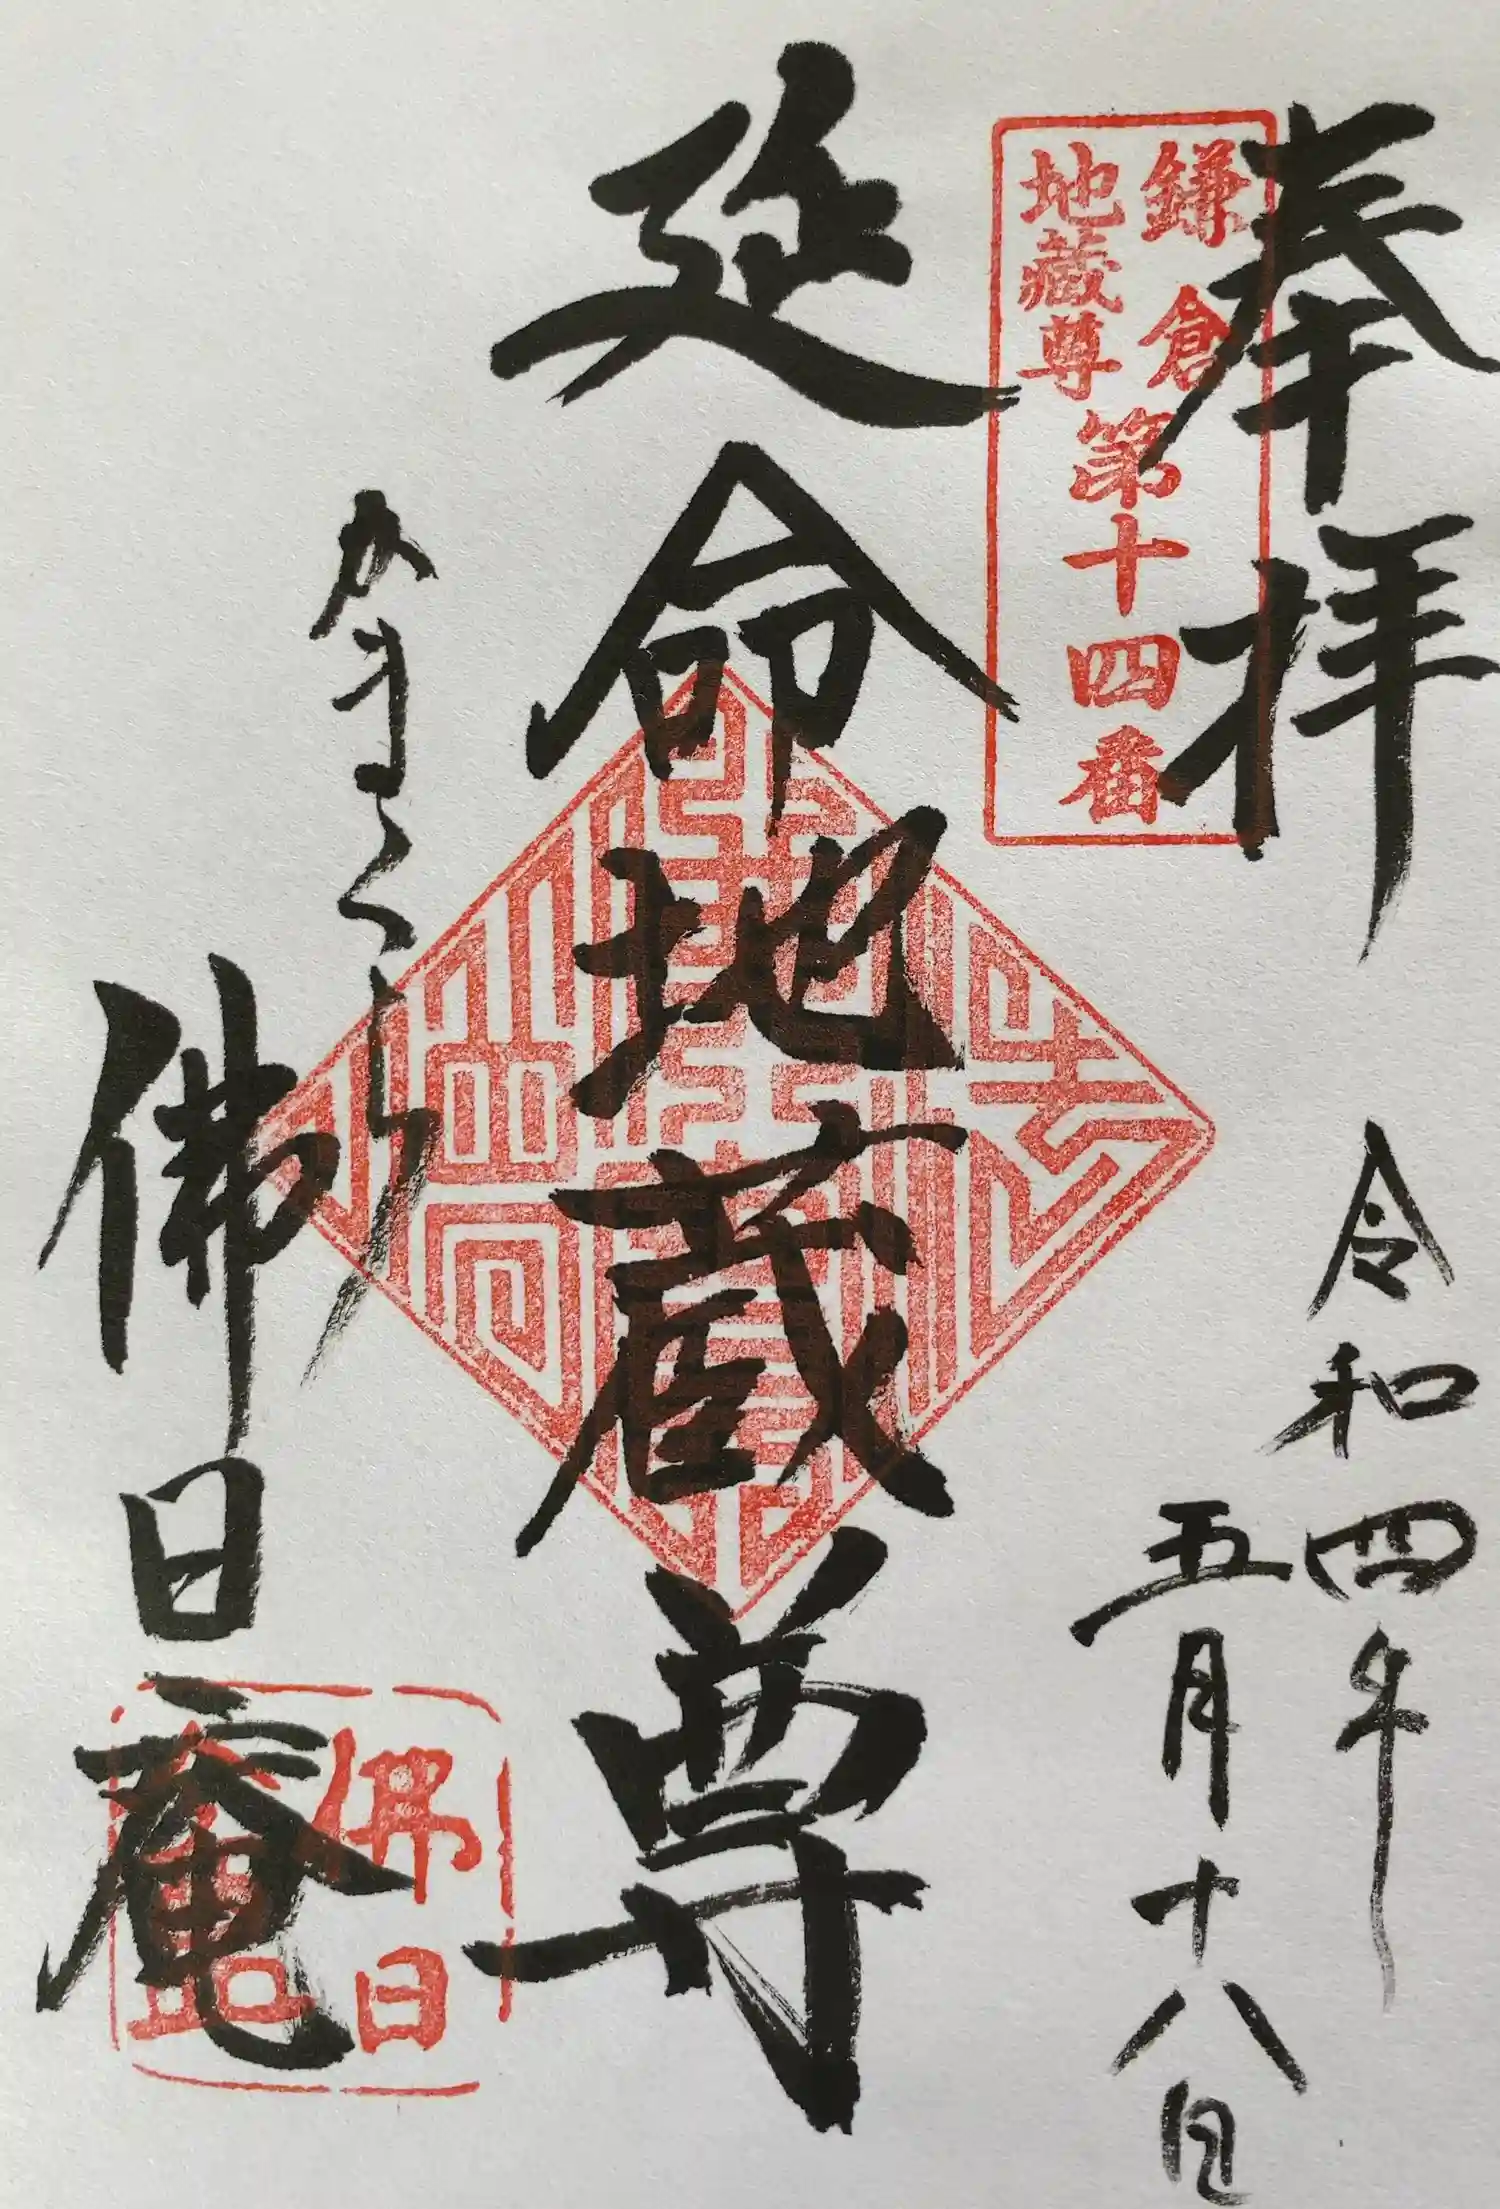 奉拝
鎌倉
地蔵尊
第十四番
令和四年
五月十八日
延命地蔵尊
かまくら
佛日庵
佛日
庵